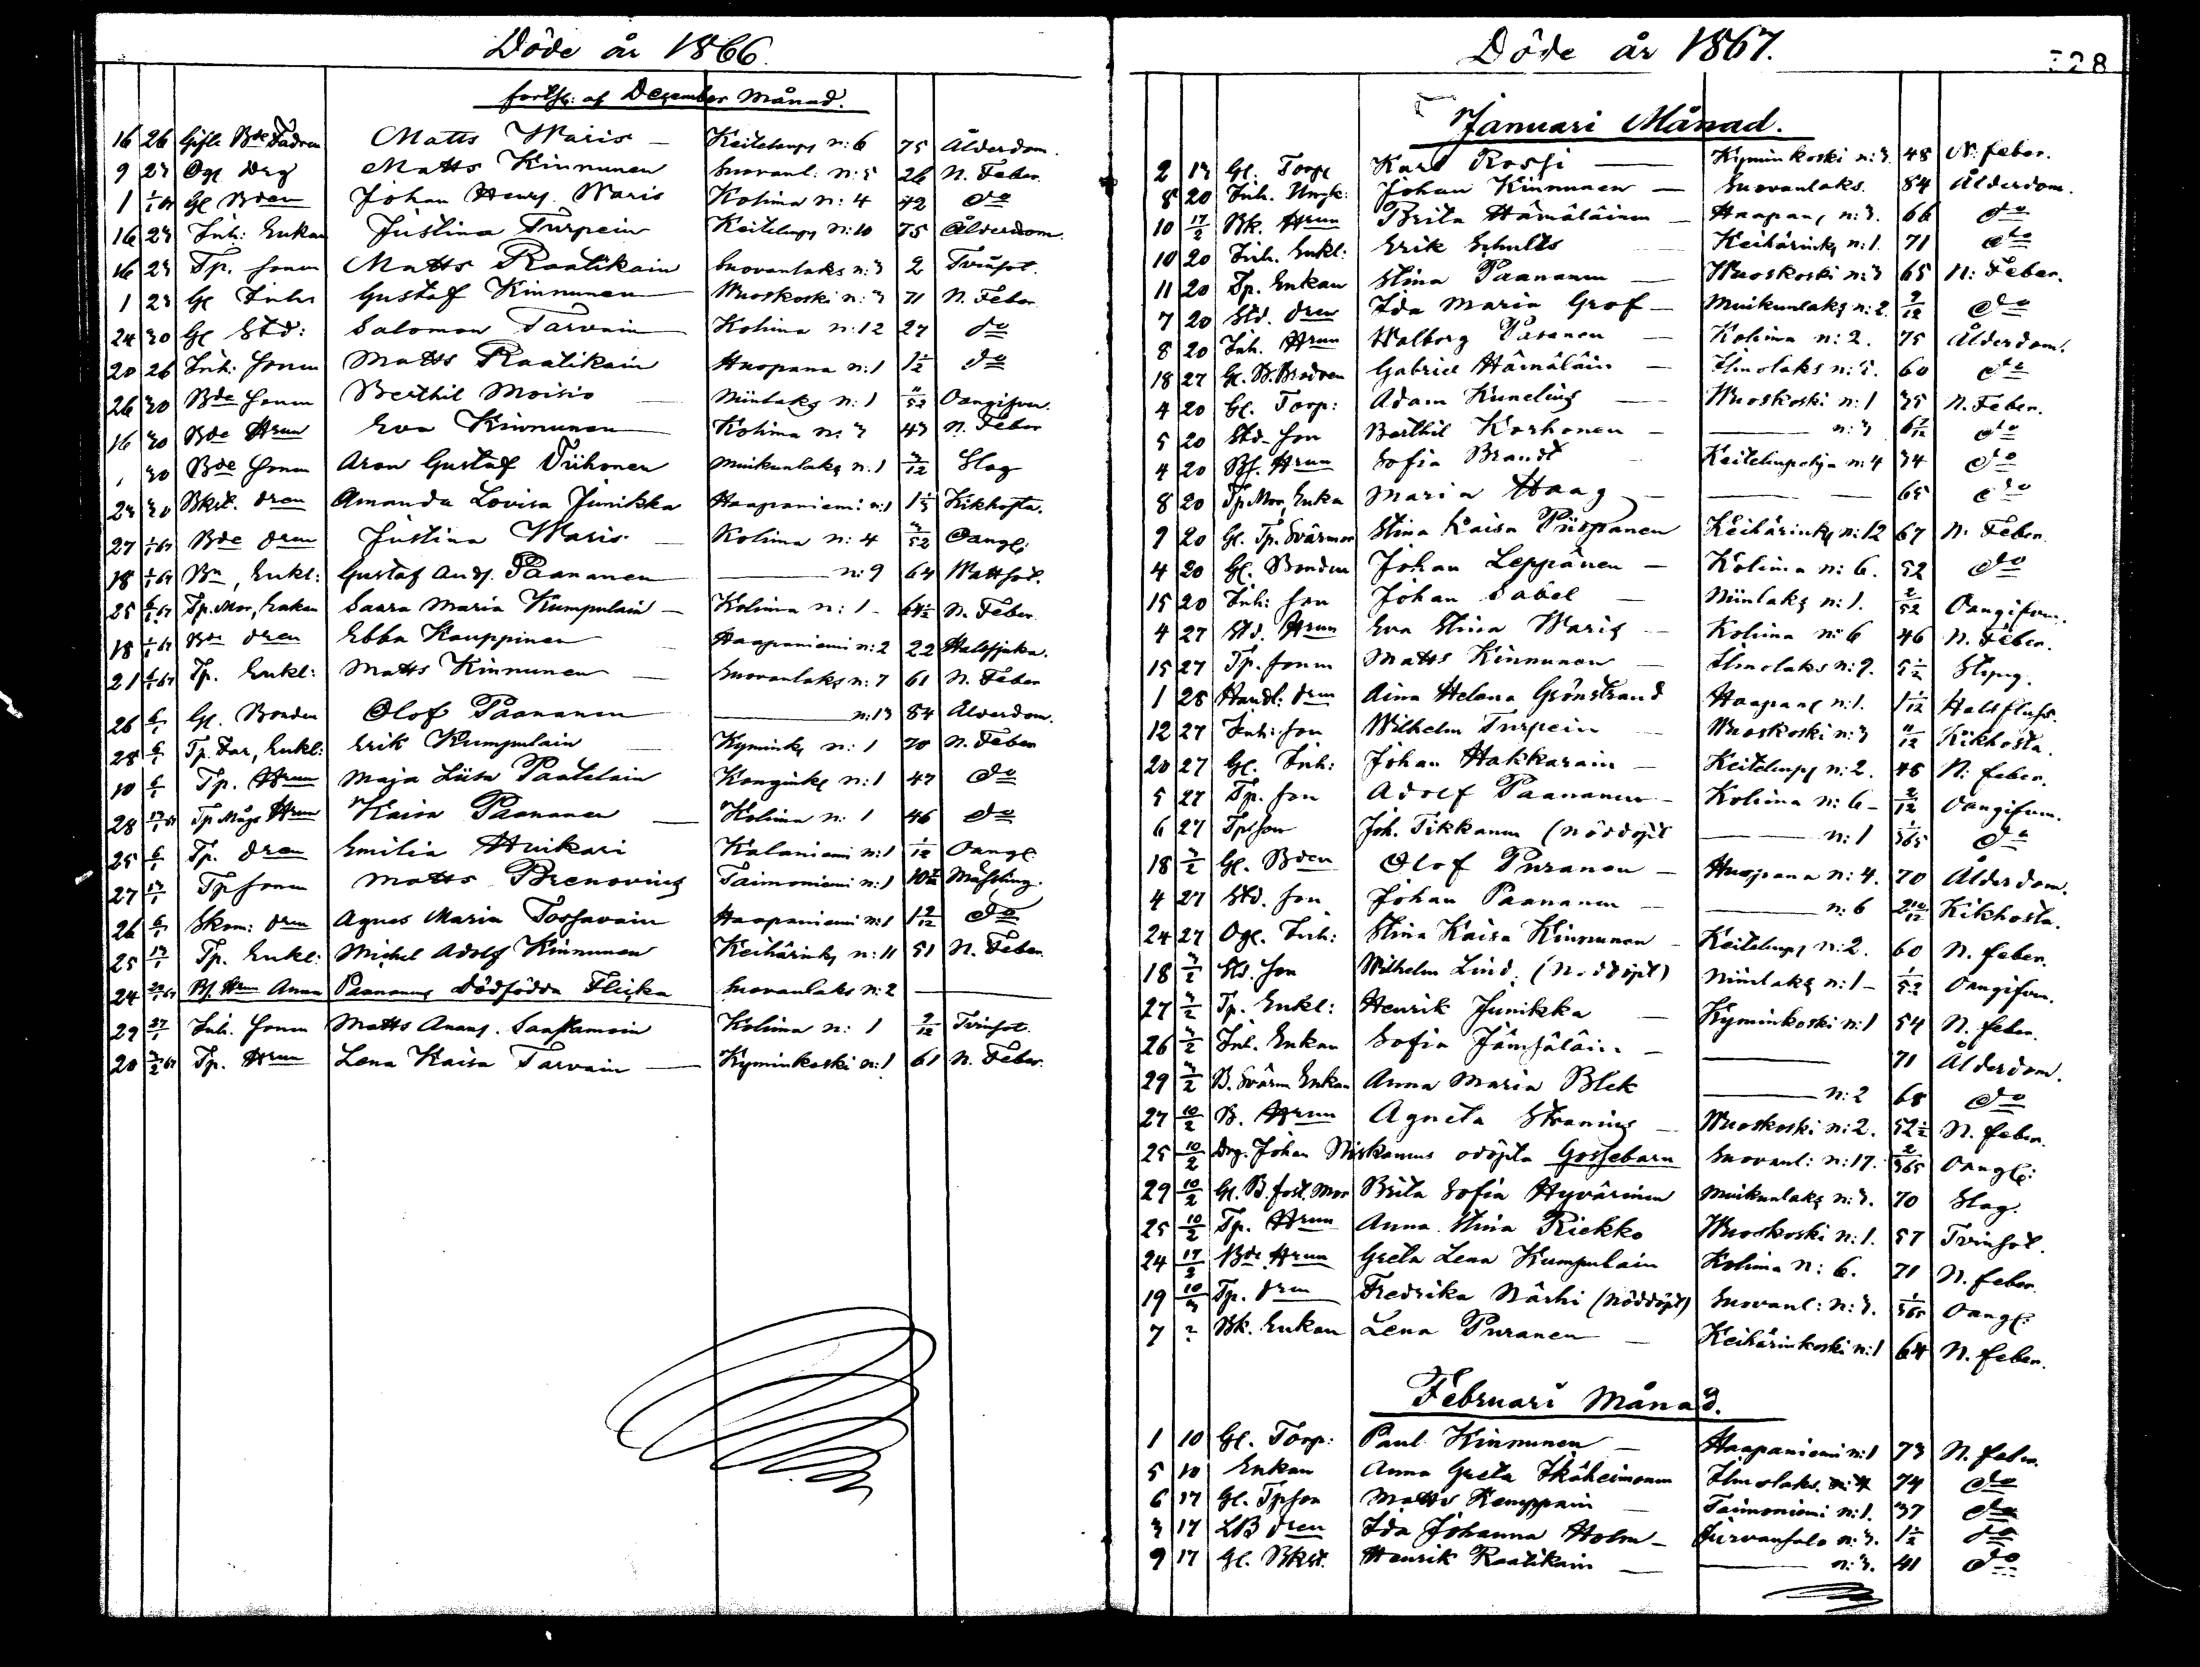 Döde år 1866.
fortsj: af Dezember Månad.
16 26 Gifte Bde Fadren Matts Waris – Keitelepoj n: 6 75 Ålderdom.
9 23 Ogf Drg Matts Kinnunen Suovanl: n: 5 26 N. Feber.
1 1/1 67 Gl Bden Johan Henrj Waris Kolima n: 4 42 do
16 23 Inh: Enkan Justina Turpein Keitelepoj n: 10 75 Ålderdom.
16 23 Tp. sonen Matts Raatikain Suovanlaks n: 3 2 Tvinsot.
1 23 Gl Inhs Gustaf Kinnunen Wuoskoski n: 3 71 N. Feber
24 30 Gl Std: Salomon Tarvain Kolima n: 12 27 do
20 26 Inh: sonen Matts Raatikain Huopana n: 1 1 1/2 do
26 30 Bde sonen Berthil Moisio – Niinlaks n: 1 11/52 Oangifven.
16 30 Bde Hrun Eva Kinnunen – Kolima n: 3 43 N. Feber
30 Bde sonen Aron Gustaf Tiihonen Muikunlaks n. 1 3/12 Slag
23 30 Bkst. dren Amanda Lovisa Junikka Haapaniemi n: 1 1 1/3 Kikhosta.
27 1/1 67 Bde dren Justina Waris – Kolima n: 4 3/52 Oangf:
18 1/1 67 Bn, Enkl: Gustaf Andj. Paananen ——— n: 9 64 Wattsot.
25 6/1 67 Tp. Mor, Enkan Saara Maria Kumpulain – Kolima n: 1 – 64 1/2 N. Feber
18 1/1 67 Bde dren Ebba Kauppinen Haapaniemi n: 2 22 Halssjuka.
21 6/1 67 Tp. Enkl: Matts Kinnunen – Suovanlaks n: 7 61 N. Feber
26 6/1 Gl. Bonden Olof Paananen ——— n: 13 84 Ålderdom.
28 6/1 Tp. Far, Enkl: Erik Kumpulain Kymink n: 1 70 N. Feber
10 6/1 Tp. Hrun Maja Liisa Paatelain Konginks n: 1 47 do
28 13/1 67 Tp Mågs Hrun Kaisa Paananen – Kolima n: 1 46 do
25 6/1 Tp. dren Emilia Huikari Kalaniemi n: 1 1/12 Oangf.
27 13/1 Tp sonen Matts Brenovius Taimoniemi n: 1 10 Mässling.
26 6/1 Skom: dren Agnes Maria Tossavain Haapaniemi n: 1 1 9/12 do
25 13/1 Tp. Enkl: Michel Adolf Kinnunen Keihärinks n: 11 51 N. Feber.
24 20/1 67 Bf. Hrun Anna Paananens dödfödda Flicka Suovanlaks n: 2 ———
29 27/1 Inh. sonen Matts Ananj. Saastamoin Kolima n: 1 9/12 Tvinsot.
20 3/2 67 Tp. Hrun Lena Kaisa Tarvain – Kyminkoski n: 1 61 N. Feber.
Döde år 1867.
328
Januari Månad.
2 13 Gl. Torp Karl Rossi – Kyminkoski n: 3. 48 N: feber.
8 20 Inh. Johan Kinnunen – Suovanlaks. 84 Ålderdom.
10 17/2 Bk. Hrun Brita Hämäläinen – Haapan, n: 3. 66 do
10 20 Inh. Enkl: Erik Schults Keihärinks n: 1. 71 do
11 20 Tp. Enkan Stina Paananen – Wuoskoski n: 3 65 N: Feber.
7 20 Std. dren Ida Maria Grof – Muikunlaks n: 2. 9/12 do
8 20 Inh. Hrun Walborg Pasanen – Kolima n: 2. 75 Ålderdom.
18 27 Gl. B. Brodren Gabriel Hämäläin – Ilmolaks n: 5. 60 do
4 20 Gl. Torp: Adam Kunelius – Wuoskoski n: 1 35 N. Feber.
5 20 Std. son Berthil Korhonen – ——— n: 3 6 do
4 20 Bf. Hrun Sofia Brandt – Keitelepohja n: 4 34 do
8 20 Tp Mor, Enka Maria Haag – ——— 65 do
9 20 Gl. Tp. Svärmor Stina Kaisa Piispanen Keihärinks n: 12 67 N. Feber.
4 20 Gl. Bonden Johan Leppänen – Kolima n: 6. 52 do
15 20 Inh: son Johan Sabel – Niinlaks n: 1. 2/52 Oangifven.
4 27 Std. Hrun Eva Stina Waris – Kolima n: 6 46 N. Feber.
15 27 Tp. sonen Matts Kinnunen – Ilmolaks n: 9. 5 1/2 Stryng.
1 28 Handl: dren Aina Helena Grönstrand Haapanl n: 1. 1 1/12 Halsflusz.
12 27 Inh: son Wilhelm Turpein – Wuoskoski n: 3 11/12 Kikhosta.
20 27 Gl. Inh: Johan Hakkarain – Keitelepoj n: 2. 48 N: feber.
5 27 Tp. son Adolf Paananen – Kolima n: 6 – 2/12 Oangifven.
6 27 Tp son Joh. Tikkanen (nöddöpt ——— n: 1 1/365 do
18 3/2 Gl. Bden Olof Puranen – Huopana n: 4. 70 Ålderdom.
4 27 Std. son Johan Paananen – ——— n: 6 2 10/12 Kikhosta.
24 27 Ogl. Inh: Stina Kaisa Kinnunen – Keitelepoj n: 2. 60 N. feber.
18 3/2 Std. son Wilhelm Lind. (Nöddöpt) Niinlaks n: 1 – 1/52 Oangifven.
27 3/2 Tp. Enkl: Henrik Junikka – Kyminkoski n: 1 54 N. feber.
26 3/2 Inh. Enkan Sofia Jämsäläin – ——— 71 Ålderdom.
29 3/2 B. Svärm Enkan Anna Maria Blek ——— n: 2 68 do
27 10/2 B. Hrun Agneta Stranius – Wuoskoski n: 2. 52 1/2 N. feber.
25 10/2 Drg. Johan Niskanens odöpta Gossebarn Suovanl: n: 17. 2/365 Oangf:
29 10/2 Gl. B. fost. Mor Brita Sofia Hyvärinen Muikunlaks n: 3. 70 Slag.
25 10/2 Tp. Hrun Anna Stina Riekko Wuoskoski n: 1. 57 Tvinsot.
24 17/3 Bde Hrun Greta Lena Kumpulain Kolima n: 6. 71 N. feber.
19 10/3 Tp. dren Fredrika Närhi (nöddöpt) Suovanl: n: 3. 1/365 Oangf:
7 ? Bk. Enkan Lena Puranen – Keihärinkoski n: 1 64 N. feber.
Februari Månad.
1 10 Gl. Torp: Paul Kinnunen – Haapaniemi n: 1 73 N. feber.
5 10 Enkan Anna Greta Ikäheimonen Ilmolaks. n: 4 74 do
6 17 Gl. Tp son Matts Kemppain – Taimoniemi n: 1. 37 do
3 17 LB dren Ida Johanna Holm – Jurvansalo n: 3. 1 1/2 do
9 17 Gl. Bkst. Henrik Raatikain – ——— n: 3. 41 do